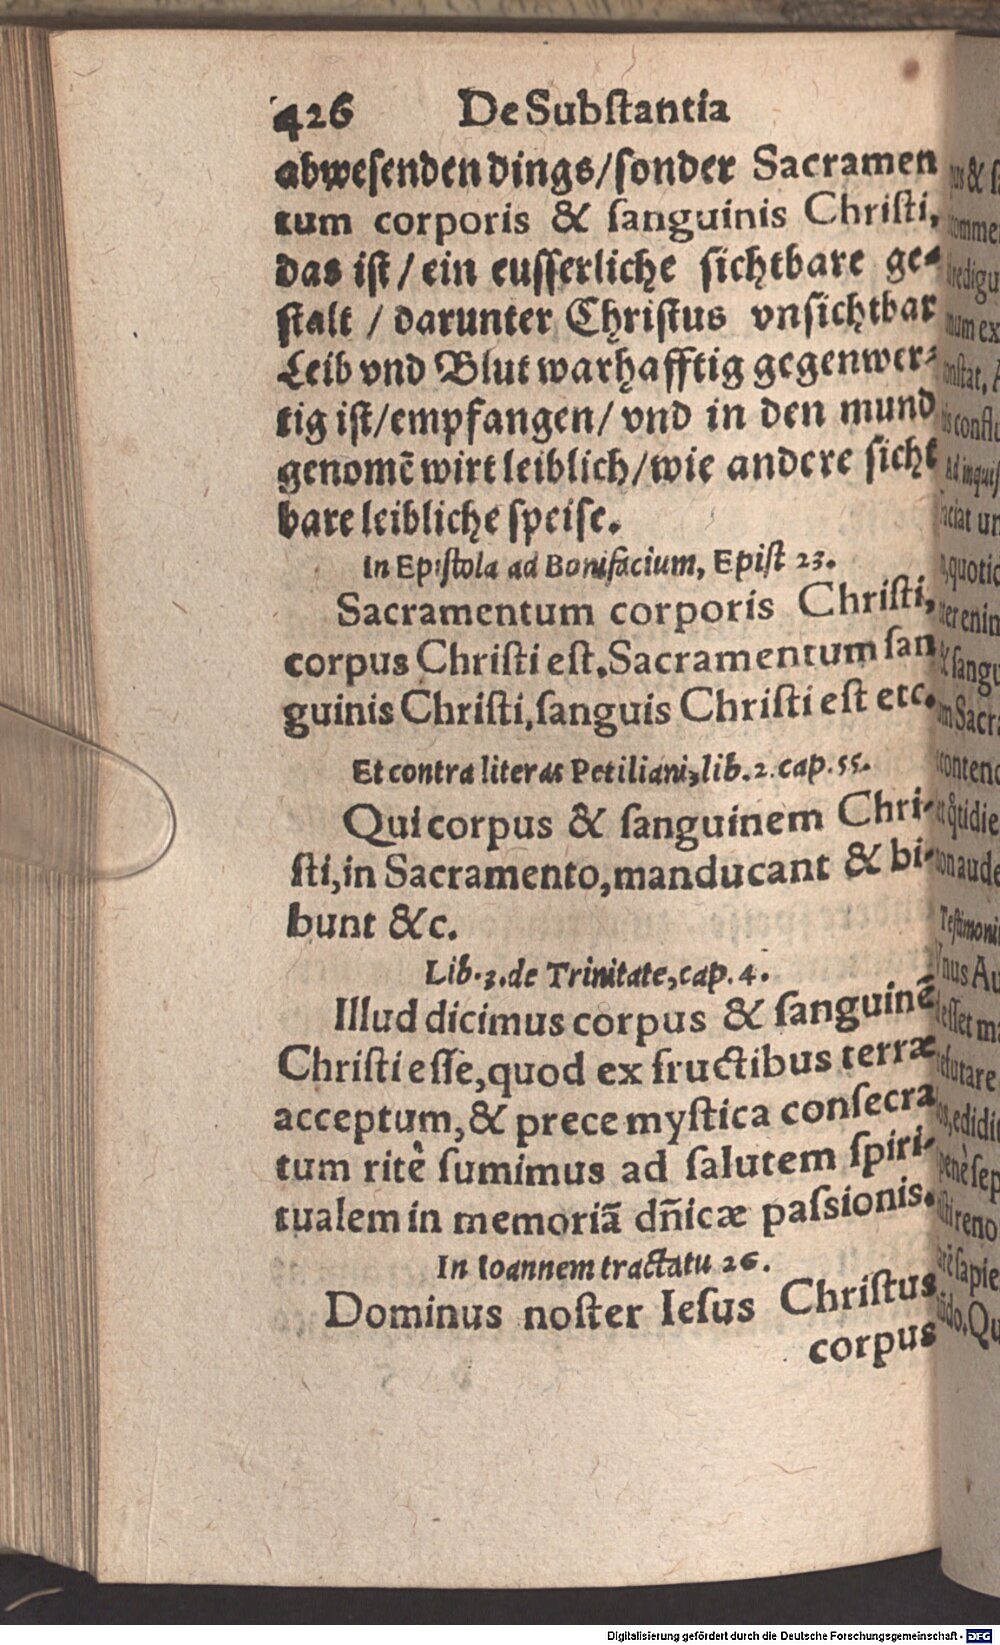 426 De Subſtantia
abweſenden dings/ſonder Sacramen
tum corporis & ſanguinis Chriſti,
das iſt / ein euſſerliche ſichtbare ge-
ſtalt / darunter Chriſtus vnſichtbar
Leib vnd Blut warhafftig gegenwer-
tig iſt/empfangen/ vnd in den mund
genomē wirt leiblich/wie andere ſicht
bare leibliche ſpeiſe.
In Epiſtola ad Bonifacium, Epiſt 23.
Sacramentum corporis Chriſti,
corpus Chriſti eſt. Sacramentum ſan
guinis Chriſti, ſanguis Chriſti eſt etc.
Et contra literas Petiliani, lib. 2. cap. 55.
Qui corpus & ſanguinem Chri-
ſti, in Sacramento, manducant & bi-
bunt &c.
Lib. 3. de Trinitate, cap. 4.
Illud dicimus corpus & ſanguinē
Chriſti eſſe, quod ex fructibus terræ
acceptum, & prece myſtica conſecra
tum ritè ſumimus ad ſalutem ſpiri-
tualem in memoriā dñicæ paſsionis.
In Ioannem tractatu 26.
Dominus noſter Ieſus Chriſtus
corpus
Digitalisierung gefördert durch die Deutsche Forschungsgemeinschaft - DFG